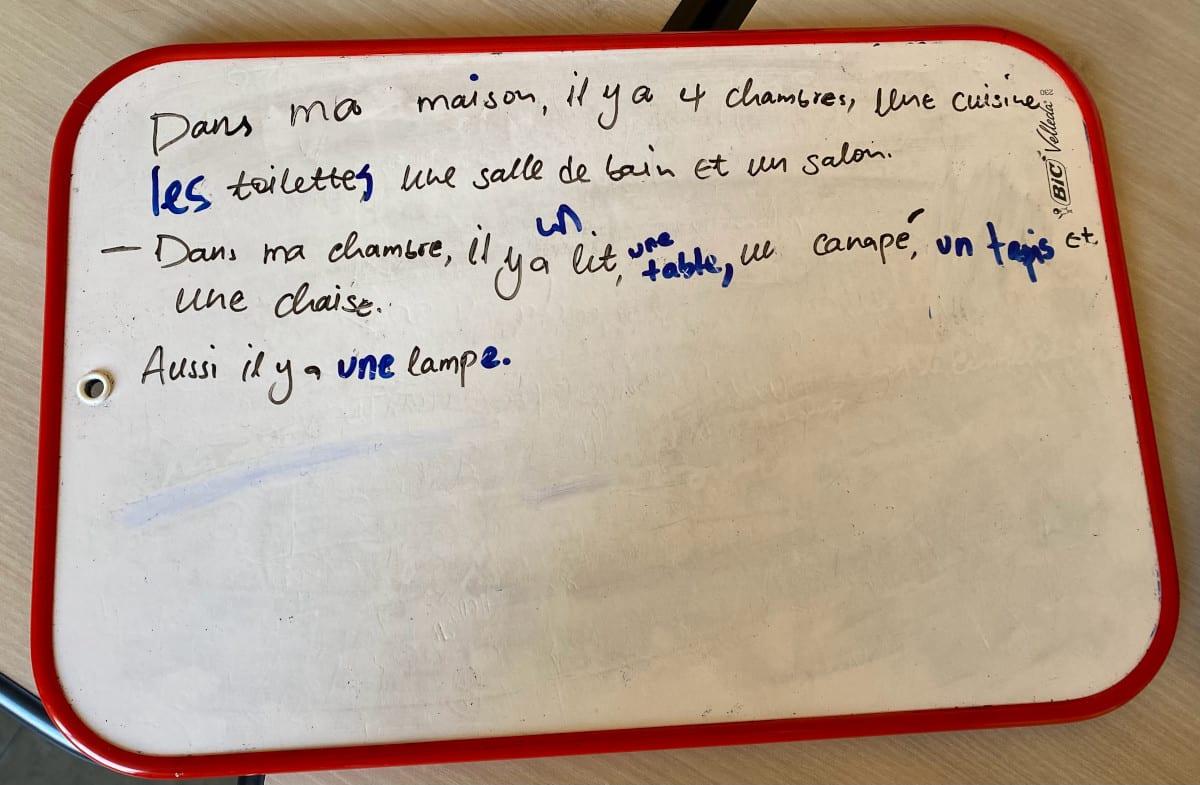 Dans ma maison, il y a 4 chambres, une cuisine
les toilettes une salle de bain et un salon.
- Dans ma chambre, il y a un lit, une table, un canapé, un tapis et
une chaise.
Aussi il y a une lampe.
BIC Velleda